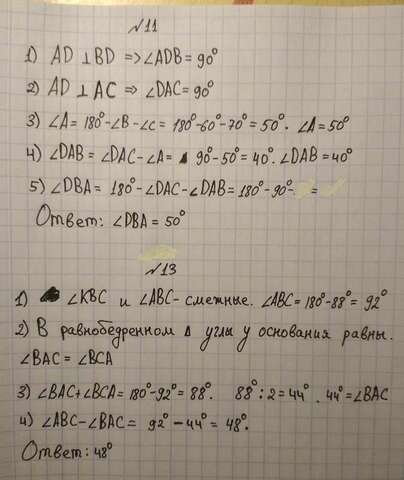 №11
1) AD ⊥ BD => ∠ADB = 90°
2) AD ⊥ AC => ∠DAC = 90°
3) ∠A = 180°-∠B-∠C = 180°-60°-70° = 50°. ∠A = 50°
4) ∠DAB = ∠DAC - ∠A = 90-50° = 40°. ∠DAB = 40°
5) ∠DBA = 180°-∠DAC-∠DAB = 180°-90°- =
Ответ: ∠DBA = 50°
№13
1) ∠KBC и ∠ABC - смежные. ∠ABC = 180°-88° = 92°
2) В равнобедренном Δ углы у основания равны.
∠BAC = ∠BCA
3) ∠BAC+∠BCA = 180°-92° = 88°. 88°:2 = 44°. 44° = ∠BAC
4) ∠ABC-∠BAC = 92°-44° = 48°.
Ответ: 48°